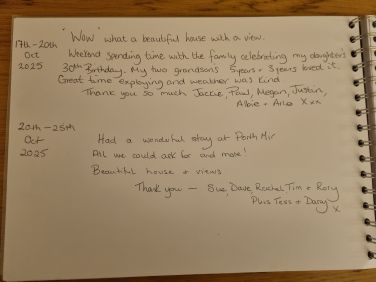 "Wow" what a beautiful house with a view.
17th - 20th Weekend spending time with the family celebrating my daughter's
Oct 30th Birthday. My two grandsons 5years + 3years loved it.
2025 Great time exploring and weather was kind
Thank you so much Jackie, Paul, Megan, Justin,
Albie + Arlo xxx
20th - 25th
Oct Had a wonderful stay at Porth Mir
2025 All we could ask for and more!
Beautiful house + views
Thank you - Sue, Dave, Rachel, Tim + Rory
Plus Tess + Darcy
x